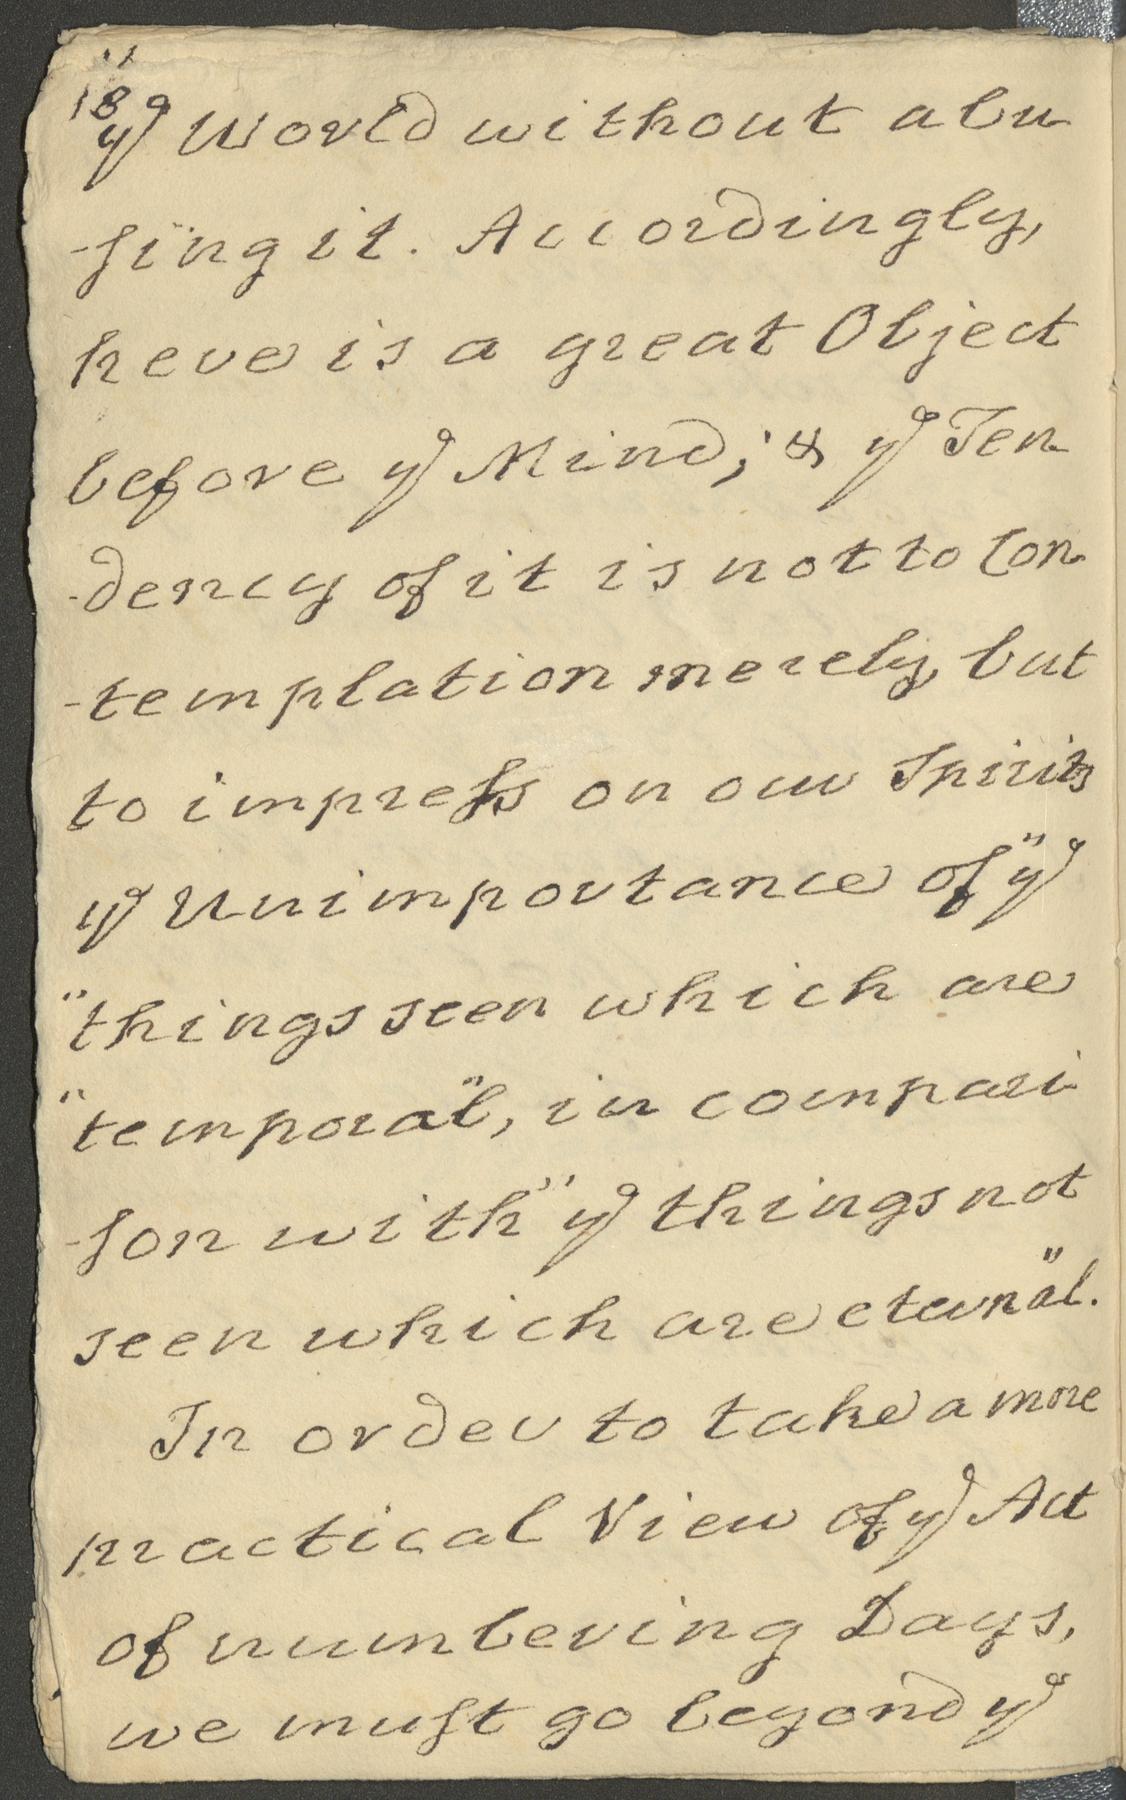 18
yᵉ World without abu
-sing it. Accordingly,
here is a great Object
before yᵉ Mind; & yᵉ Ten
-dency of it is not to Con
-templation merely, but
to impreſs on our Spirits
yᵉ Unimportance of "yᵉ
"things seen which are
"temporal", in compari
-ſon with "yᵉ things not
seen which are eternal".
In order to take a more
practical View of yᵉ Act
of numbering Days,
we muſt go beyond yᵉ